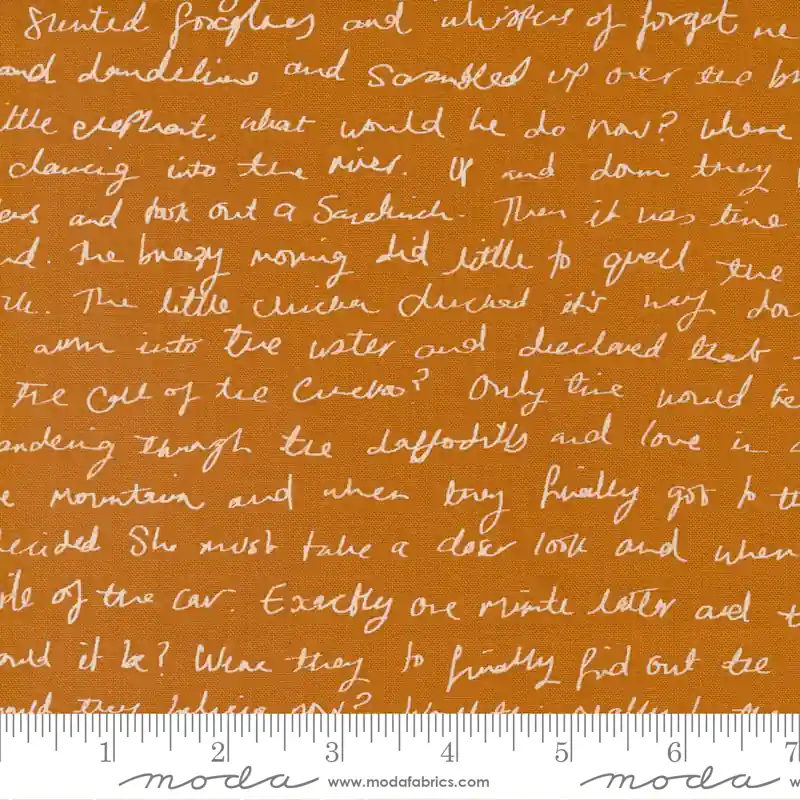 Stunted foxgloves and whispers of forget me
and dandelions and Scrambled up over the
ittle elephant, what would he do now? Where
dancing into the river. Up and down they
and took out a Sandwich. Then it was time
The breezy morning did little to quell the
The little chicken clucked it's way
into the water and declared that
The Call of the Cuckoo? Only time would
through the daffodills and love in
mountain and when they finally got to
ecided She must take a closer look and when
of the car. Exactly one minute later and
ould it be? Were they to finally find out the
ould they believe now?
1 2 3 4 5 6 7
moda www.modafabrics.com moda w